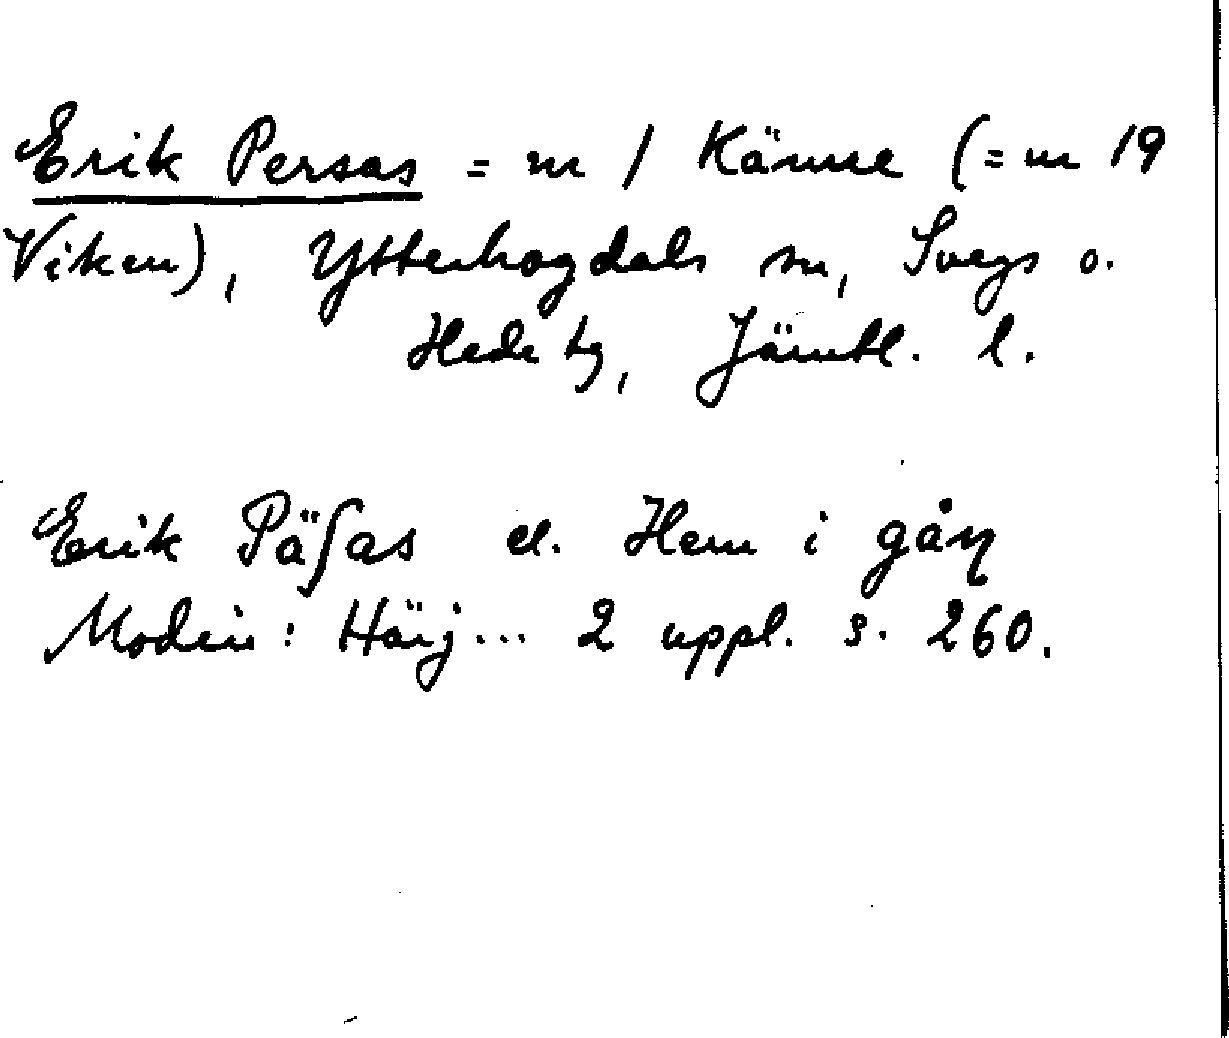 Erik Persas = m 1 Känne (= m 19
Viken), Ytterhogdals sn, Svegs o.
Hede tg, Jämtl. l.
Erik Päʃas el. Hem i gåɳ
Modin: Härj... 2 uppl. s. 260.